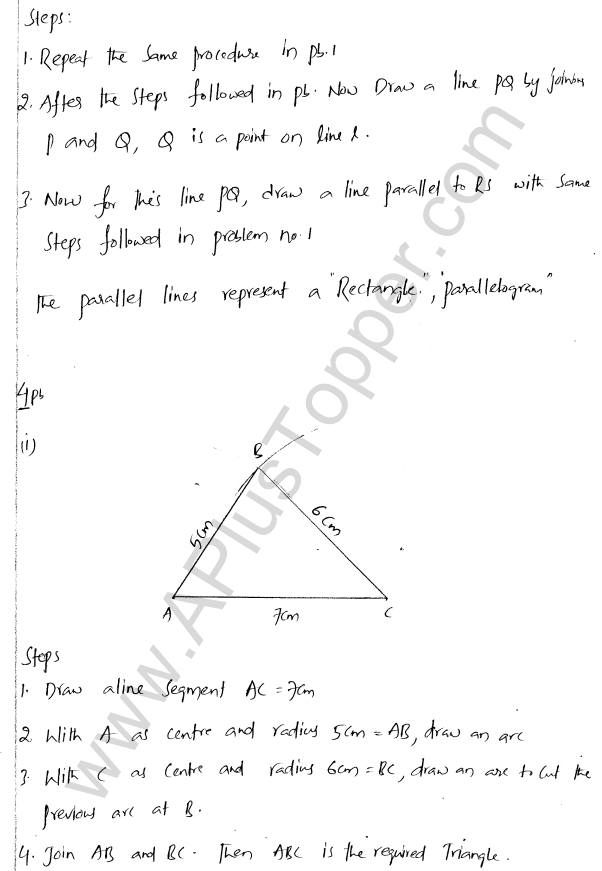 Steps:
1. Repeat the same procedure in pb.1
2. After the steps followed in pb. Now Draw a line PQ by joining
P and Q, Q is a point on line l.
3. Now for this line PQ, draw a line parallel to RS with same
steps followed in problem no.1
The parallel lines represent a "Rectangle", "parallelogram"
4 pb
(i)
B
5cm
6cm
A
7cm
C
Steps
1. Draw a line segment AC = 7cm
2. With A as centre and radius 5cm = AB, draw an arc
3. With C as centre and radius 6cm = BC, draw an arc to cut the
previous arc at B.
4. Join AB and BC. Then ABC is the required Triangle.
www.APlusTopper.com